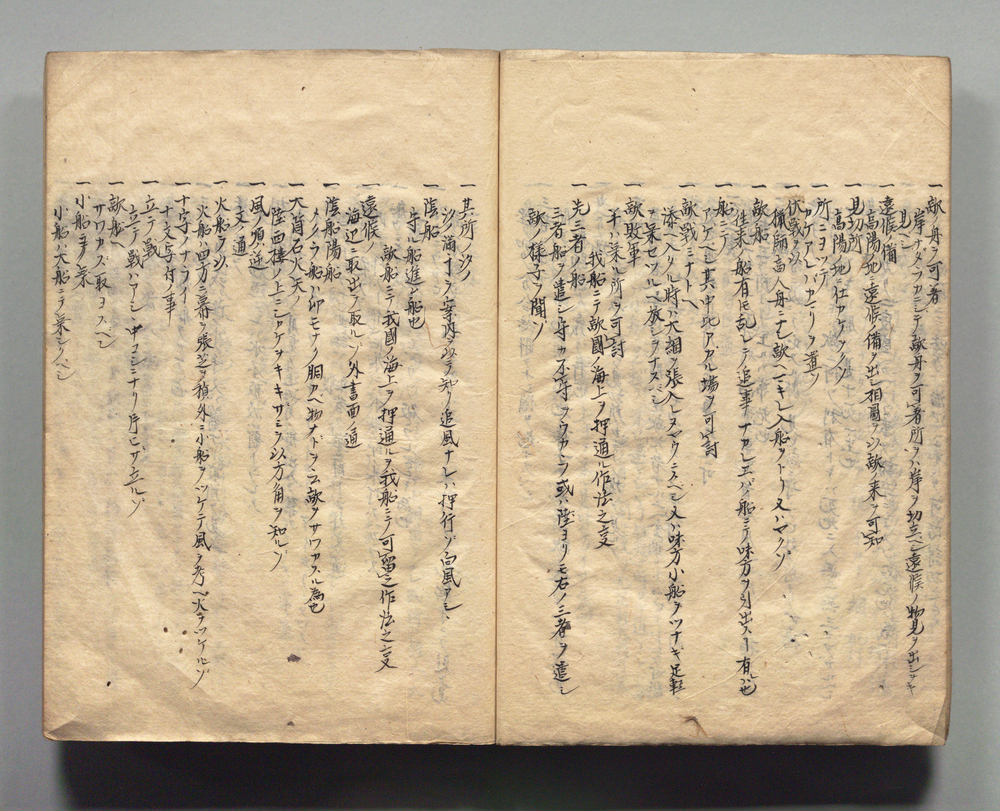 一敵舟ヲ可著
岸ナタラカニシテ敵舟ヲ可著所ヲハ岸ヲ切立ヘシ遠候ノ物見ヲ出シヲキ
見ヘシ
一遠候備
高陽ノ地ニ遠候ノ備ヲ出シ相圖ヲ以敵ノ来ヲ可知
一見切所
高陽ノ地ニ仕カケヲクソ
一所ニヨツテ
カケアレハナヒリノ道ソ
一伏戦ヲ以
猟師商人舟ニナシ敵ヘマキレ入船ヲトリ又ハマクソ
一敵船
往来ノ船有トモ乱レテ追事ナカレエバノ船ニテ味方ヲ引出スヿ有ル也
一船ニテ
アケヘシ其中比アカル場ヲ可討
一敵戦ミナトヘ
添ヘ入ル時ハ大相ヲ張入レヌヤウニスヘシ又ハ味方小船ヲツナキ足軽
ヲ乗セツルヘ放シヲナスヘシ
一敵敗軍
半ハ乗ル所ヲ可討
我船ニテ敵國ノ海上ヲ押通ル作法之支
一先三者ノ船
三者船ヲ遣シ守カ不守ヲウカヽヒ或ハ陸ヨリモ右ノ三者ヲ遣シ
敵ノ様子ヲ聞ソ
一其所ノ汐
汐ノ満干ヲ案内ヲ以テ知リ追風ナレハ押行ソ向風アシ
一陰船
守ル船進ム船也
敵船ニテ我國ノ海上ヲ押通ルヲ我船ニテ可留之作法之支
一遠候ノ
海辺ニ取出ヲ取ルソ外書面ノ通
一陰船陽船
カクラフ船ハ印モナク胴アヘ物ナトヲニ云敵ヲサワカスル為也
一大筒石火矢ノ
陸西樓ノ上ニシカケヲキキザミヲ以方角ヲ知ルソ
一風ノ順逆
文ノ通
一火船ヲ以
火船ハ四方ニ幕ヲ張芝ヲ積外ニ小船ヲツケテ風ヲ考ヘ火ヲツケルソ
一十字ノナラヒ
十文字付ノ事
一立テノ戦
立テノ戦ハワレ中ワミニナリ片ヒサ立ルソ
一敵船ヘ
サワカス取ヨスヘシ
一小船ニテノ乗
小船ハ大船ニテ乗シクヘシ